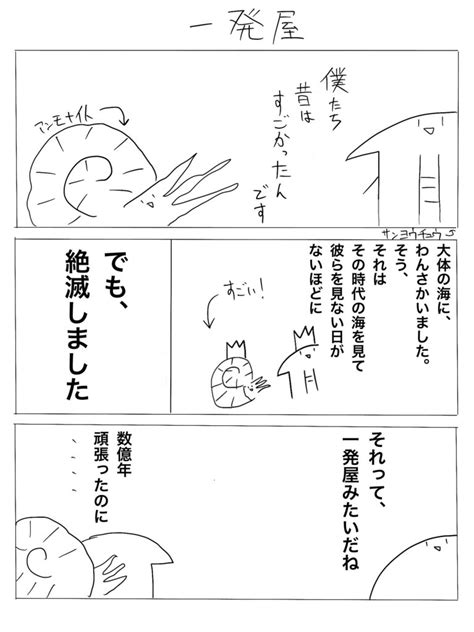 一発屋
僕たち
昔は
すごかったん
です
アンモナイト
サンヨウチュウ
大体の海に、
わんさかいました。
そう、
それは
その時代の海を見て
彼らを見ない日が
ないほどに
すごい!
でも、
絶滅しました
それって、
一発屋みたいだね
数億年
頑張ったのに
、、、、